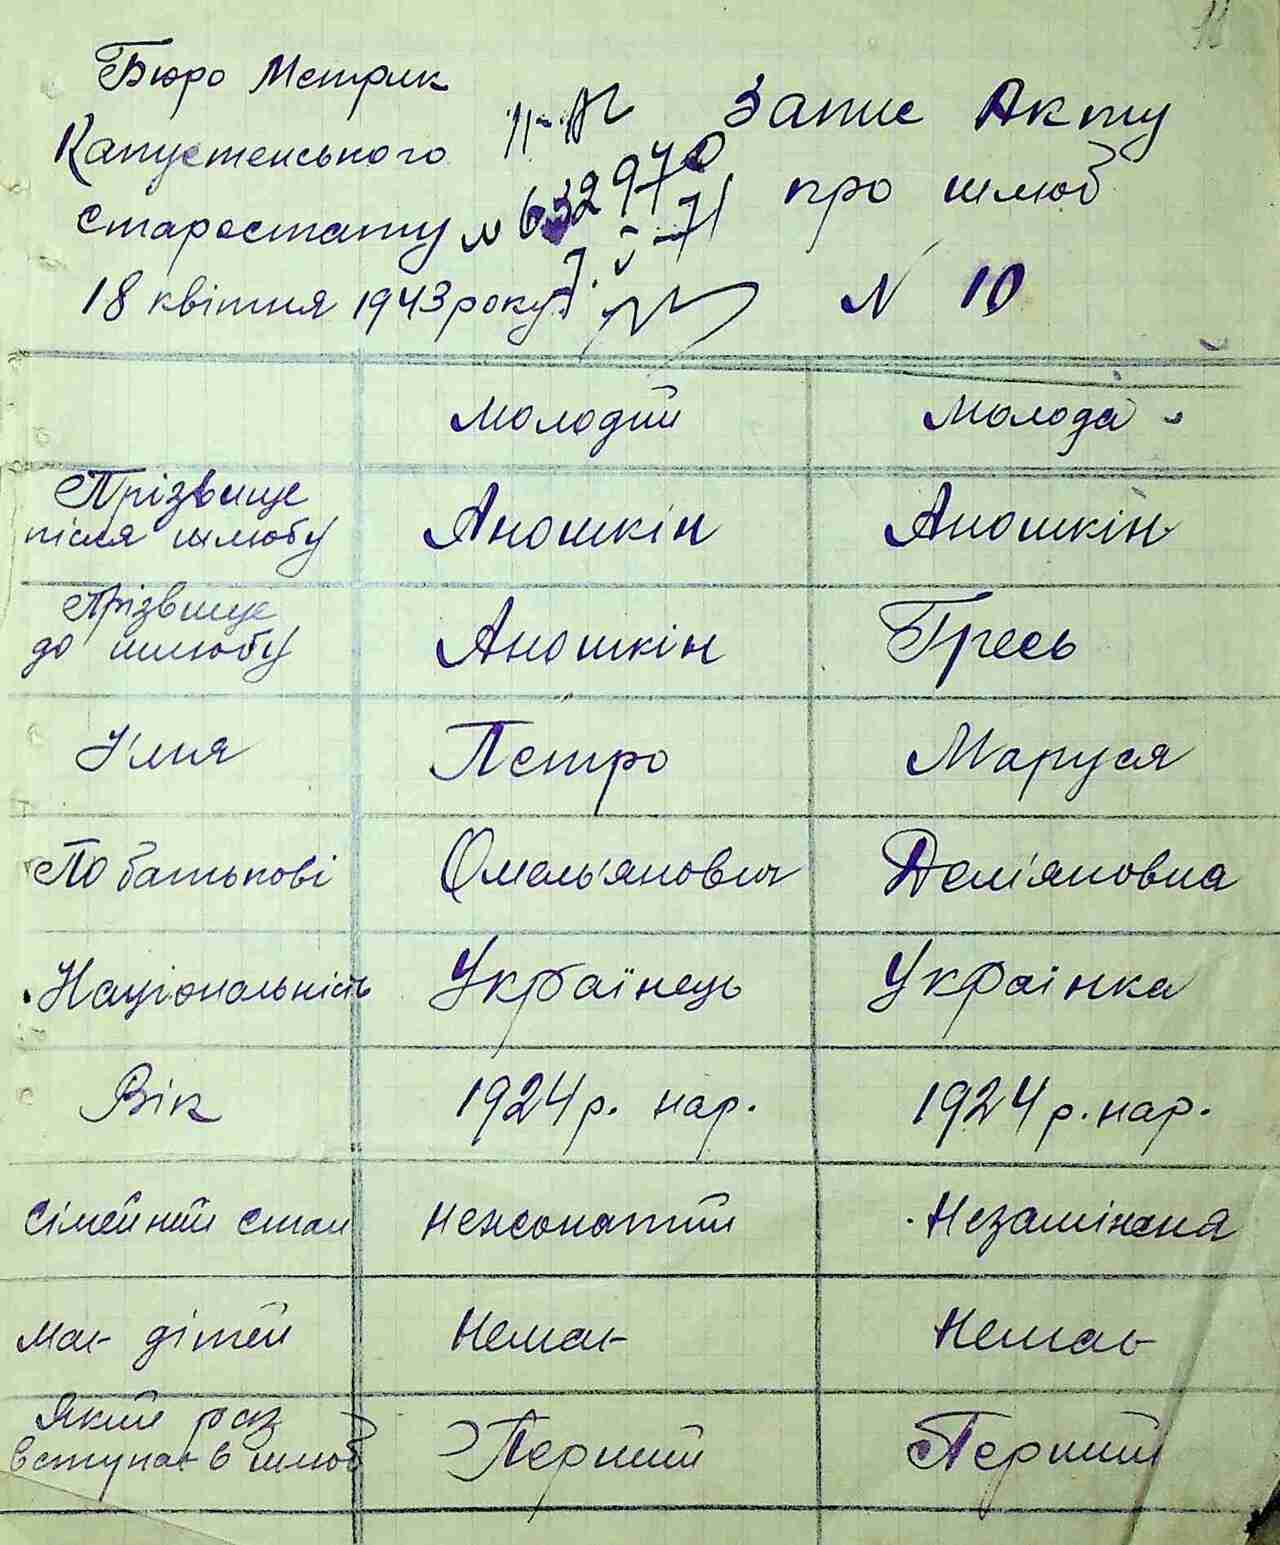 11
Бюро Метрик
Капустенського
старостату
18 квітня 1943 року
Запис Акту
про шлюб
N 10
N 632970
Молодий Молода
Прізвище
після шлюбу Аношкін Аношкін
Прізвище
до шлюбу Аношкін Гресь
Ім'я Петро Маруся
По батькові Омель'янович Дем'яновна
Національність Українець Українка
Вік 1924 р. нар. 1924 р. нар.
Сімейний стан нежонатий Незаміжня
Має дітей Немає Немає
Який раз
вступає в шлюб Перший Перший